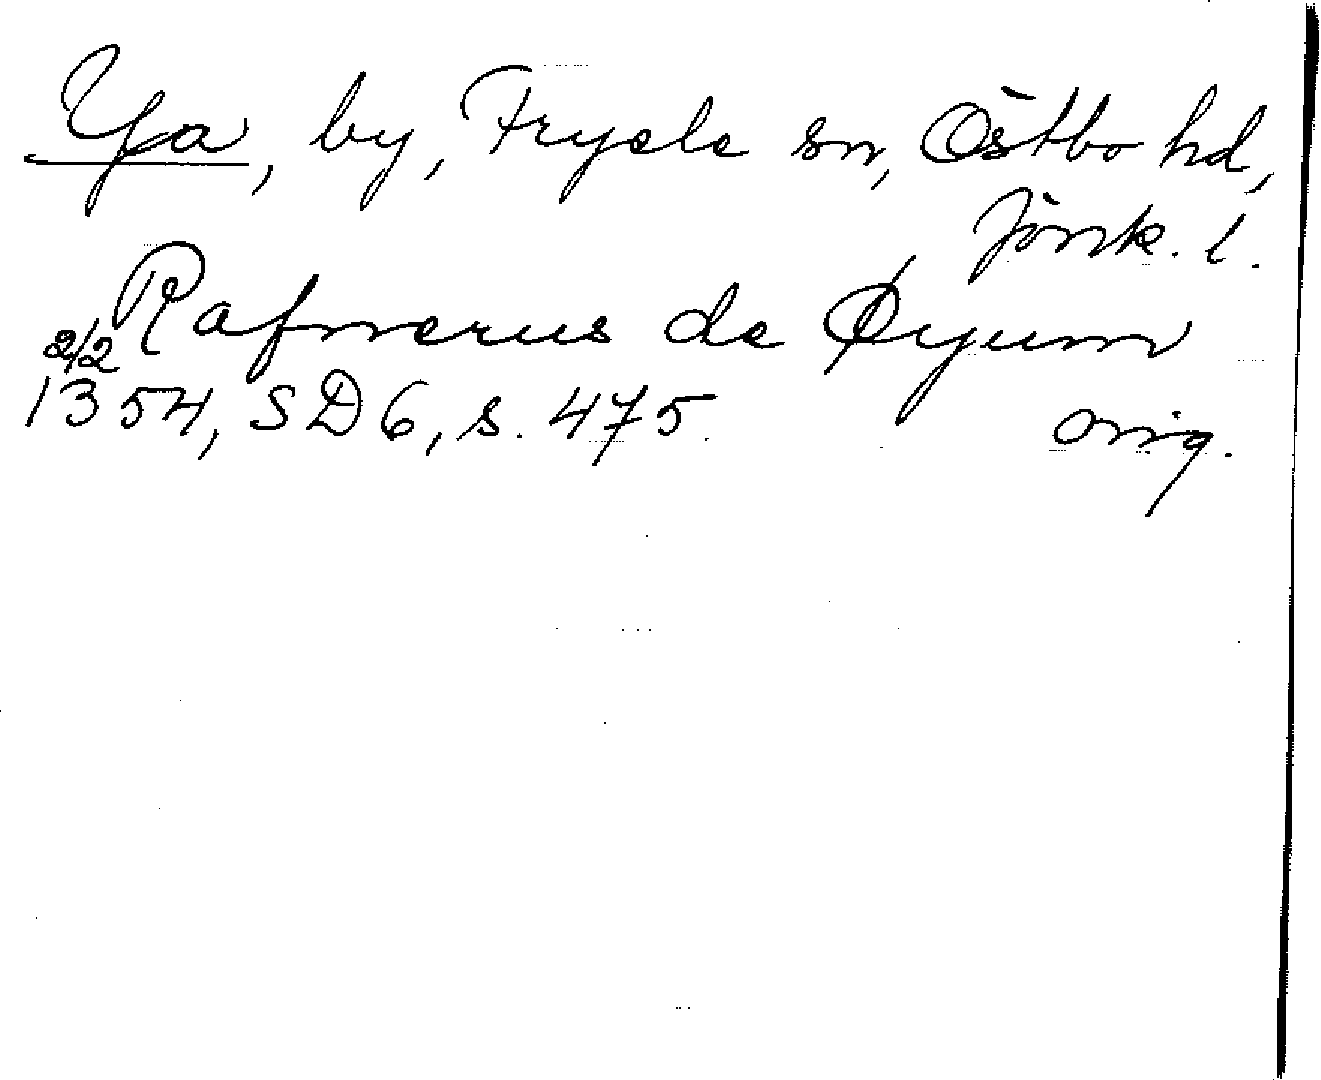 Ya, by, Fryele sn, Östbo hd,
Jönk. l.
Rafnerus de Øyum
2/2
1354, SD 6, s. 475. orig.